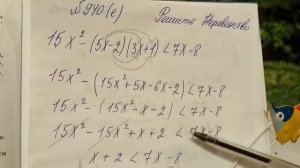 №940(е) Решите Неравенство
15x² - (5x-2)(3x+1) < 7x-8
15x² - (15x²+5x-6x-2) < 7x-8
15x² - (15x²-x-2) < 7x-8
15x² - 15x² + x + 2 < 7x-8
x + 2 < 7x - 8